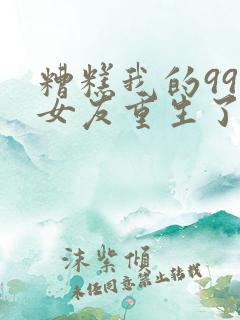 糟糕我的99
女友重生了
沫紫倾
未经同意禁止转载